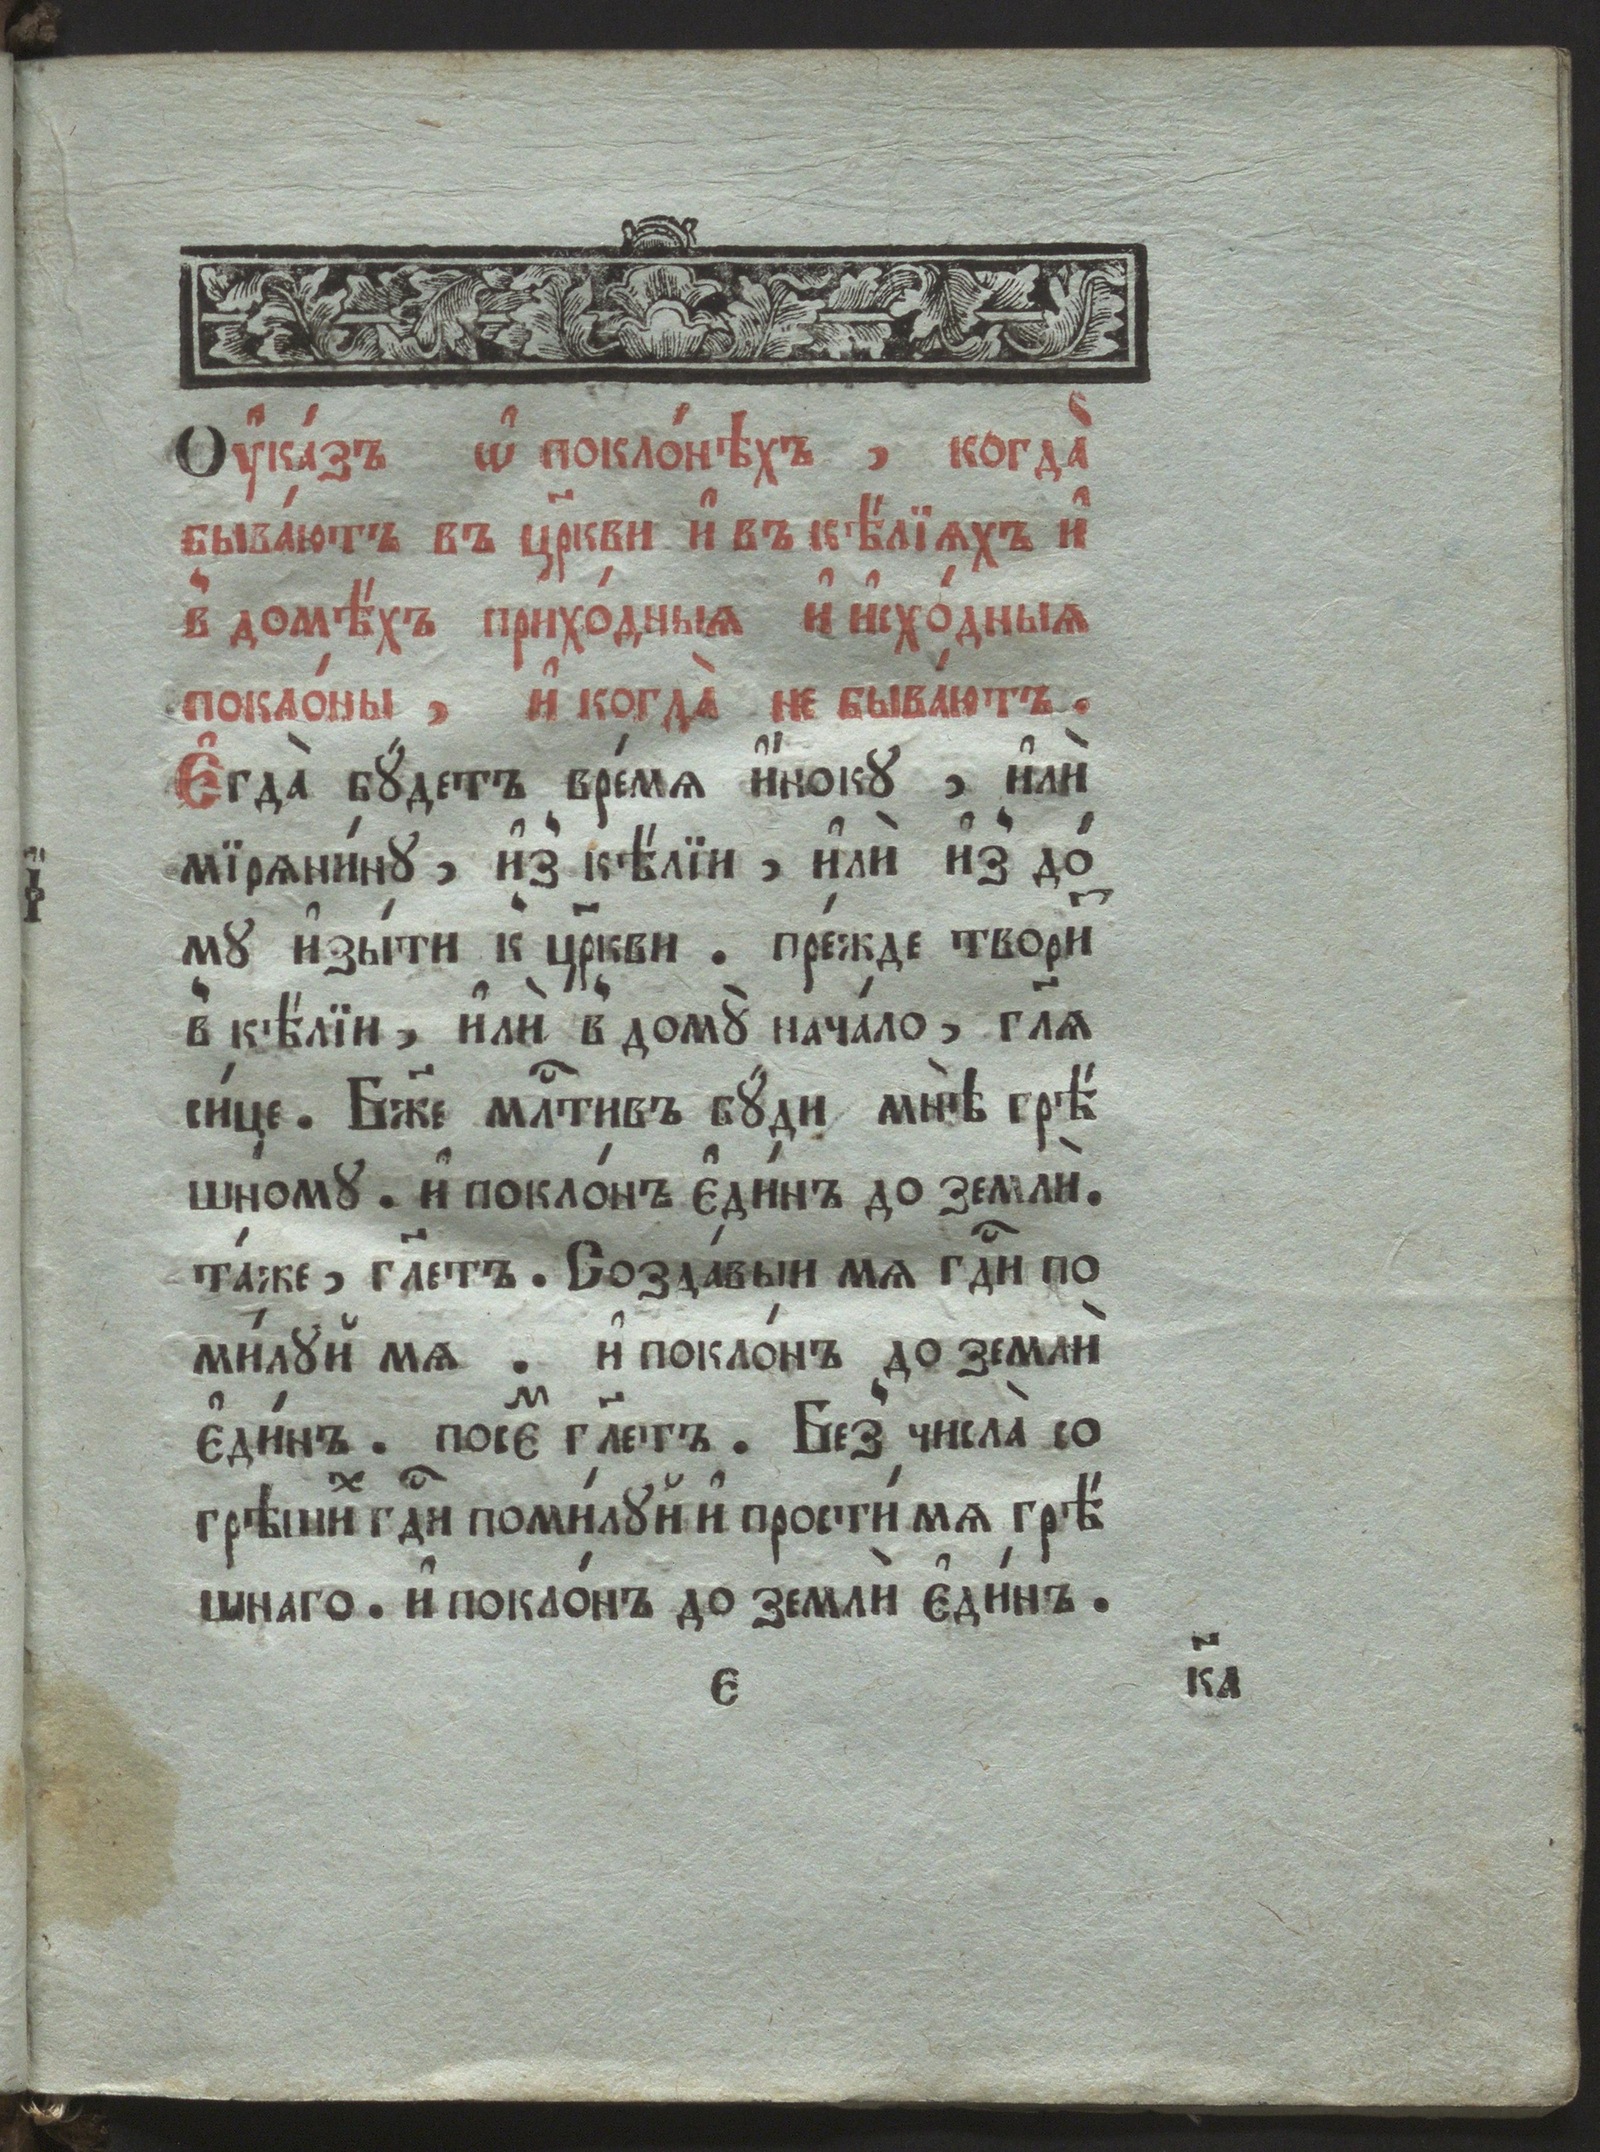 Оу҆ка́зъ ѡ҆ покло́нѣхъ , когда̀
быва́ютъ въ цр҃кви и҆ въ кѣ́лїѧхъ и҆
в̾ домѣ́хъ прихо́дныѧ и҆ и҆схо́дныѧ
покло́ны , и҆ когда̀ не быва́ютъ .
Є҆гда̀ бꙋ́детъ вре́мѧ и҆́нокꙋ , и҆лѝ
мїрѧни́нꙋ , и҆з̾ кѣ́лїи , и҆лѝ и҆з̾ до́
мꙋ и҆зы́ти к̾ цр҃кви . пре́жде твори҃
в̾ кѣ́лїи , и҆лѝ в̾ домꙋ̀ нача́ло , гл҃ѧ
си́це . Бж҃е млⷭ҇тивъ бꙋ́ди мнѣ̀ грѣ́
шномꙋ . и҆ покло́нъ є҆ди́нъ до землѝ .
та́же , гл҃етъ . Созда́выи мѧ гдⷭ҇и по
ми́лꙋй мѧ . и҆ покло́нъ до землѝ
є҆ди́нъ . посєⷨ гл҃етъ . Без̾ числа̀ со
грѣшиⷯ гдⷭ҇и поми́лꙋй и҆ прости́ мѧ грѣ́
шнаго . и҆ покло́нъ до землѝ є҆ди́нъ .
є
к҃а